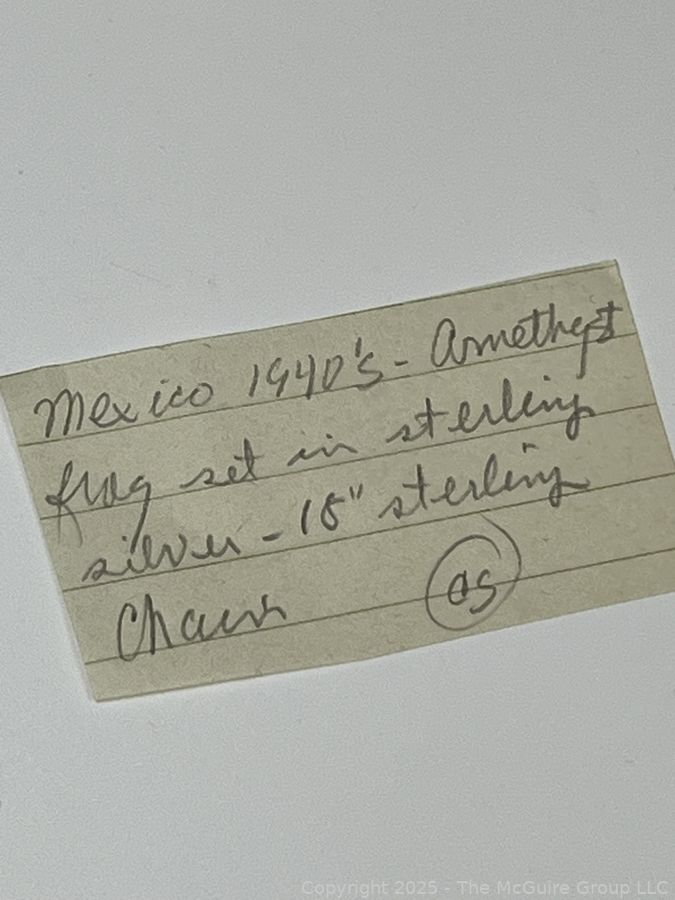 Mexico 1940's - Amethyst
frog set in sterling
silver - 18" sterling
Chain
as
Copyright 2025 - The McGuire Group LLC